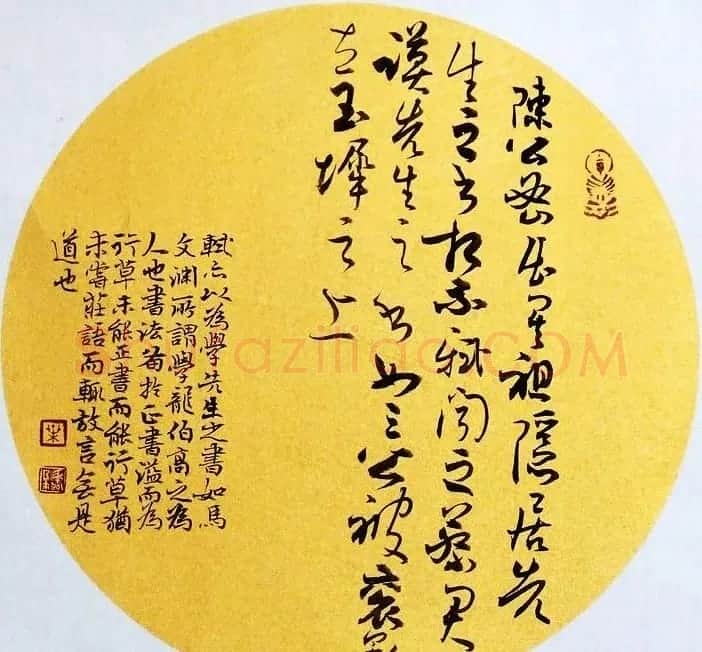 陳公密出其祖隱居先
生之書相示軾聞之蔡君
謨先生之書如三公被袞
立玉墀之上
軾亦以為學先生之書如馬
文淵所謂學龍伯高之為
人也書法備於正書溢而為
行草未能正書而能行草猶
未嘗莊語而輒放言無足
道也